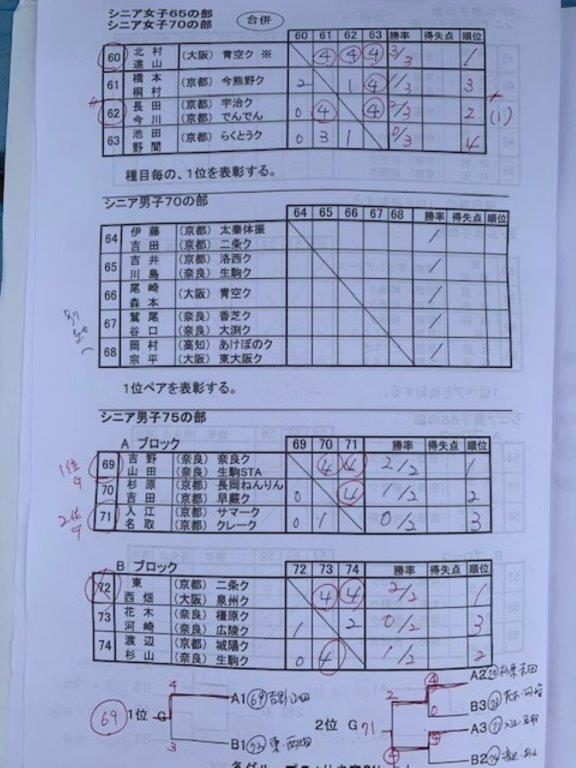 シニア女子65の部
シニア女子70の部 合併
60 61 62 63 勝率 得失点 順位
60 北村 (大阪) 青空ク ※ ④ ④ ④ 3/3 1
遠山
61 橋本 (京都) 今熊野ク 2 1 ④ 1/3 3
桐村
62 長田 (京都) 宇治ク 0 ④ ④ 2/3 2 (1)
今川 (京都) でんでん
63 池田 (京都) らくとうク 0 3 1 0/3 4
野間
種目毎の、1位を表彰する。
シニア男子70の部
64 65 66 67 68 勝率 得失点 順位
64 伊藤 (京都) 太秦体振 /
吉田 (京都) 二条ク
65 吉井 (京都) 洛西ク /
川島 (奈良) 生駒ク
66 尾崎 (大阪) 青空ク /
森本
67 鷲尾 (奈良) 香芝ク /
谷口 (奈良) 大渕ク
68 岡村 (高知) あけぼのク /
宗平 (大阪) 東大阪ク
1位ペアを表彰する。
シニア男子75の部
A ブロック 69 70 71 勝率 得失点 順位
1位 69 吉野 (奈良) 奈良ク ④ ④ 2/2 1
山田 (奈良) 生駒STA
70 杉原 (京都) 長岡ねんりん 0 ④ 1/2 2
吉田 (京都) 早蕨ク
2位 71 入江 (奈良) サマーク 0 1 0/2 3
名取 (京都) クレーク
B ブロック 72 73 74 勝率 得失点 順位
72 東 (京都) 二条ク ④ ④ 2/2 1
西畑 (大阪) 泉州ク
73 花木 (奈良) 橿原ク 1 2 0/2 3
河崎 (奈良) 広陵ク
74 渡辺 (京都) 城陽ク 0 ④ 1/2 2
杉山 (奈良) 生駒ク
69 1位 G 4 A1 69 吉野・山田
3 B1 72 東・西畑
2位 G 71 2 ④ A2
0 B3 73
④ ④ A3 71 入江・名取
B2 74 渡辺・杉山